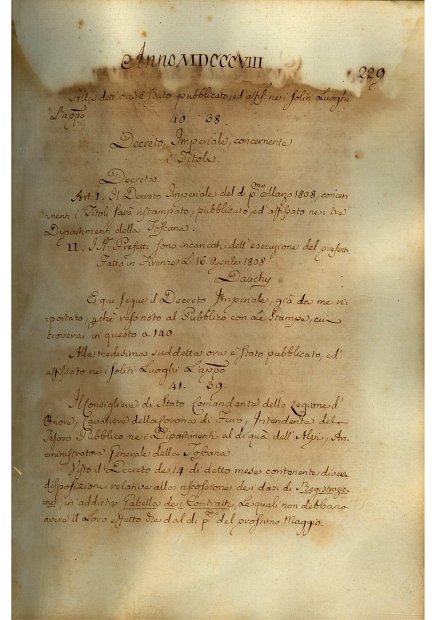 Anno MDCCCVIII
229
Alla dett' ora è stato pubblicato, ed affisso nei soliti Luoghi
Lappo
40. 38.
Decreto Imperiale, concernente
i Titoli
Decreta
Art. I. Il Decreto Imperiale del dì p.mo Marzo 1808, concer-
nenti i Titoli sarà ristampato, pubblicato, ed affissato nei tre
Dipartimenti della Toscana.
II. I SS.ri Prefetti sono incaricati dell'esecuzione del presente
Fatto in Firenze li 16 Aprile 1808
Dauchy
E qui segue il Decreto Imperiale, già da me ri-
portato, perchè reso noto al Pubblico con Le Stampe, cui
troverai in questo a 140
Alla medesima suddetta ora è stato pubblicato, ed
affissato nei soliti Luoghi Lappo
41. 39.
Il Consigliere di Stato Comandante della Legione d'
Onore, Cavaliere della Corona di Ferro, Intendente del
Tesoro Pubblico nei Dipartimenti al di quà dell'Alpi, Am-
ministratore Generale della Toscana.
Visto il Decreto de 14 di detto mese contenente diverse
disposizioni relative alla riscossione dei dazi di Registrazio-
ne, in addietro Gabella dei Contratti, Le quali non debbano
avere il Loro effetto che dal dì p.mo del prossimo Maggio.